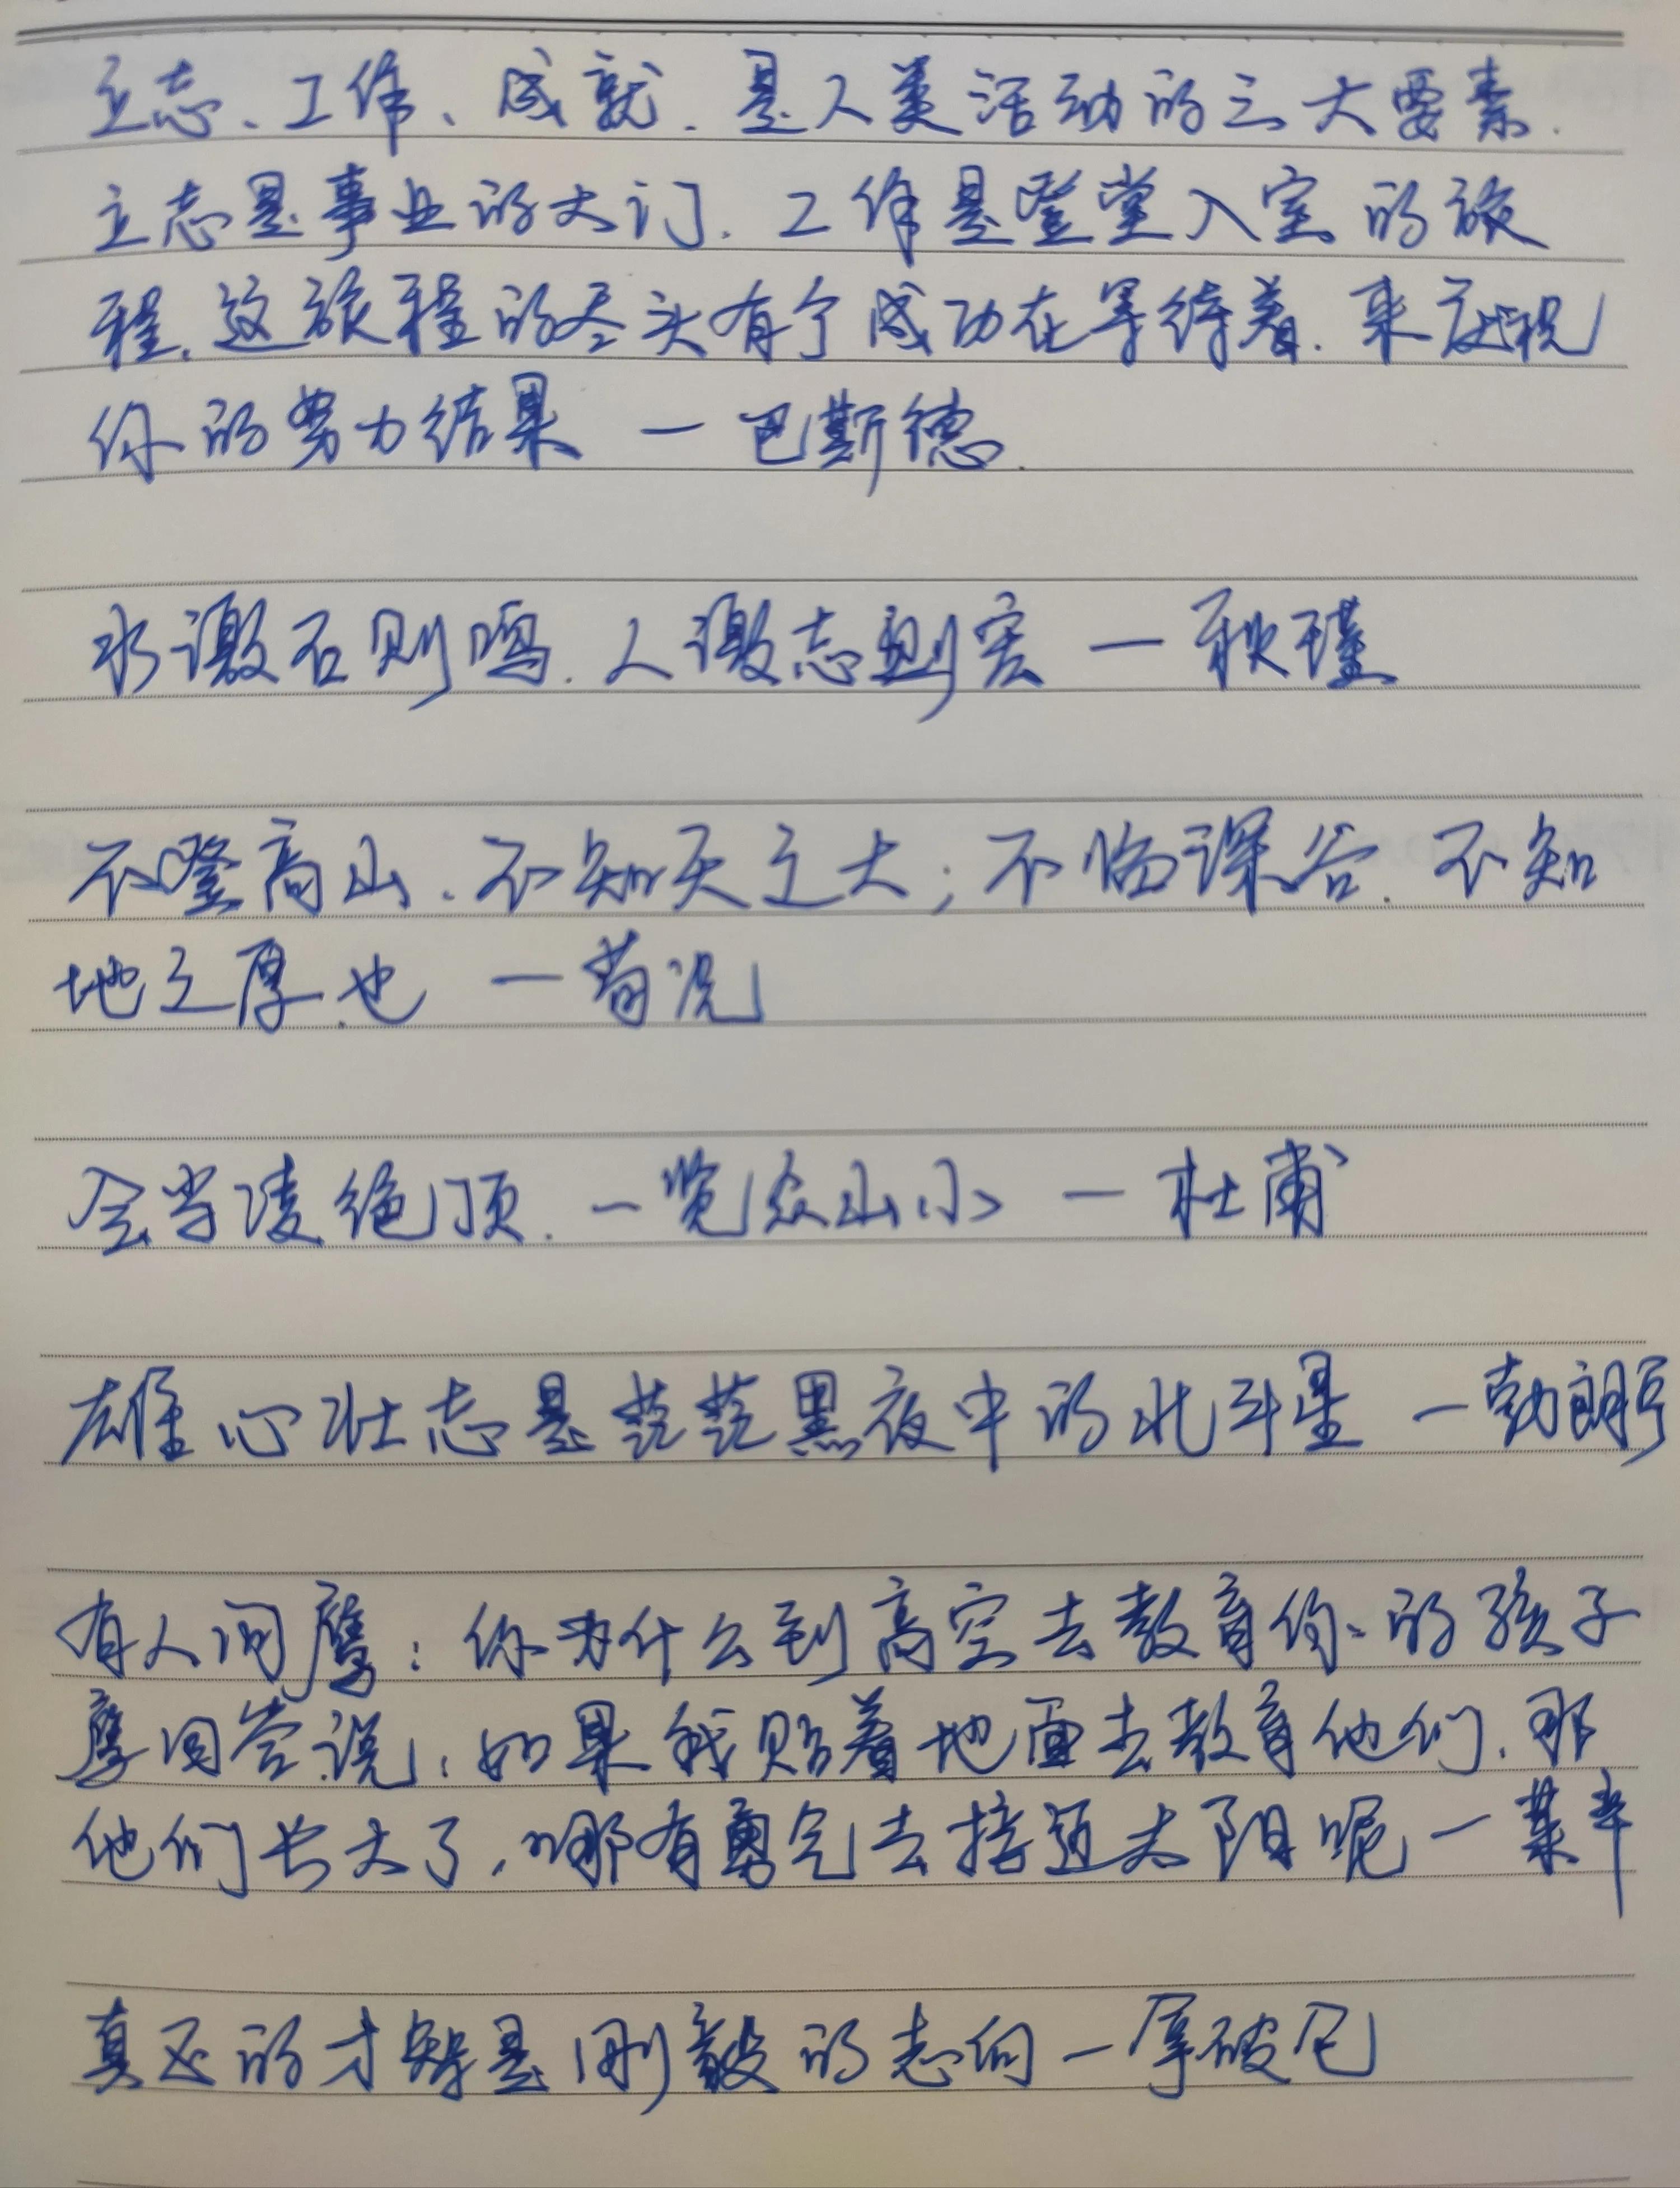 立志、工作、成就.是人类活动的三大要素.
立志是事业的大门.工作是登堂入室的旅
程.这旅程的尽头有个成功在等待着.来庆祝
你的努力结果 一巴斯德.
水激石则鸣.人激志则宏 一秋瑾
不登高山.不知天之大;不临深谷.不知
地之厚也 一荀况
会当凌绝顶.一览众山小 一杜甫
雄心壮志是茫茫黑夜中的北斗星 一勃朗宁
有人问鹰:你为什么到高空去教育你的孩子
鹰回答说:如果我贴着地面去教育他们.那
他们长大了,哪有勇气去接近太阳呢一莱辛
真正的才智是刚毅的志向一拿破仑